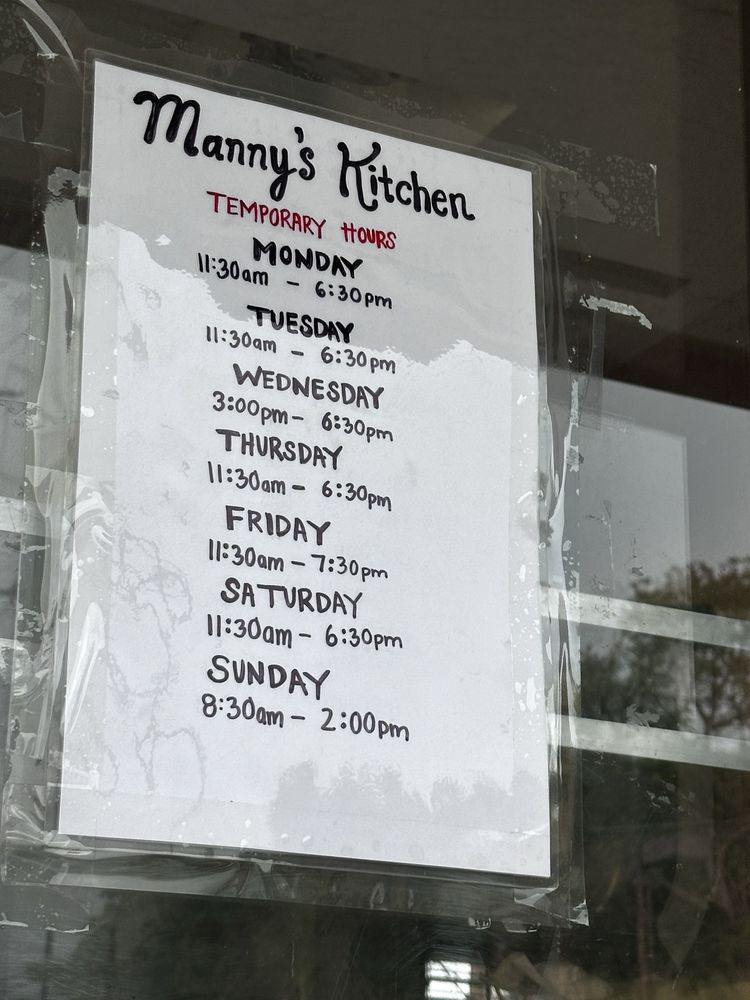 Manny's Kitchen
TEMPORARY HOURS
MONDAY
11:30am - 6:30pm
TUESDAY
11:30am - 6:30pm
WEDNESDAY
3:00pm - 6:30pm
THURSDAY
11:30am - 6:30pm
FRIDAY
11:30am - 7:30pm
SATURDAY
11:30am - 6:30pm
SUNDAY
8:30am - 2:00pm